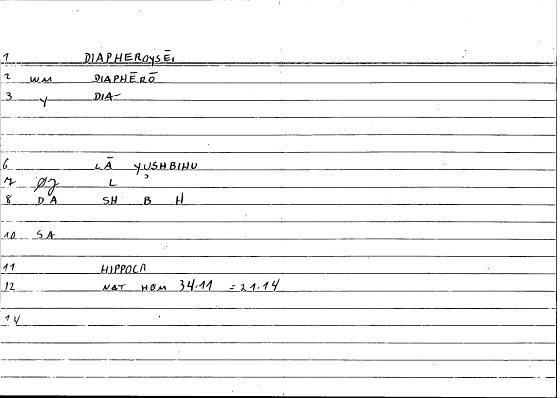 1 DIAPHEROYSĒI
2 WM DIAPHĒRŌ
3 Y DIA-
6 LĀ YUSHBIHU
7 ØJ L
8 DA SH B H
10 SA
11 HIPPOCR
12 NAT HOM 34.11 = 21.14
14